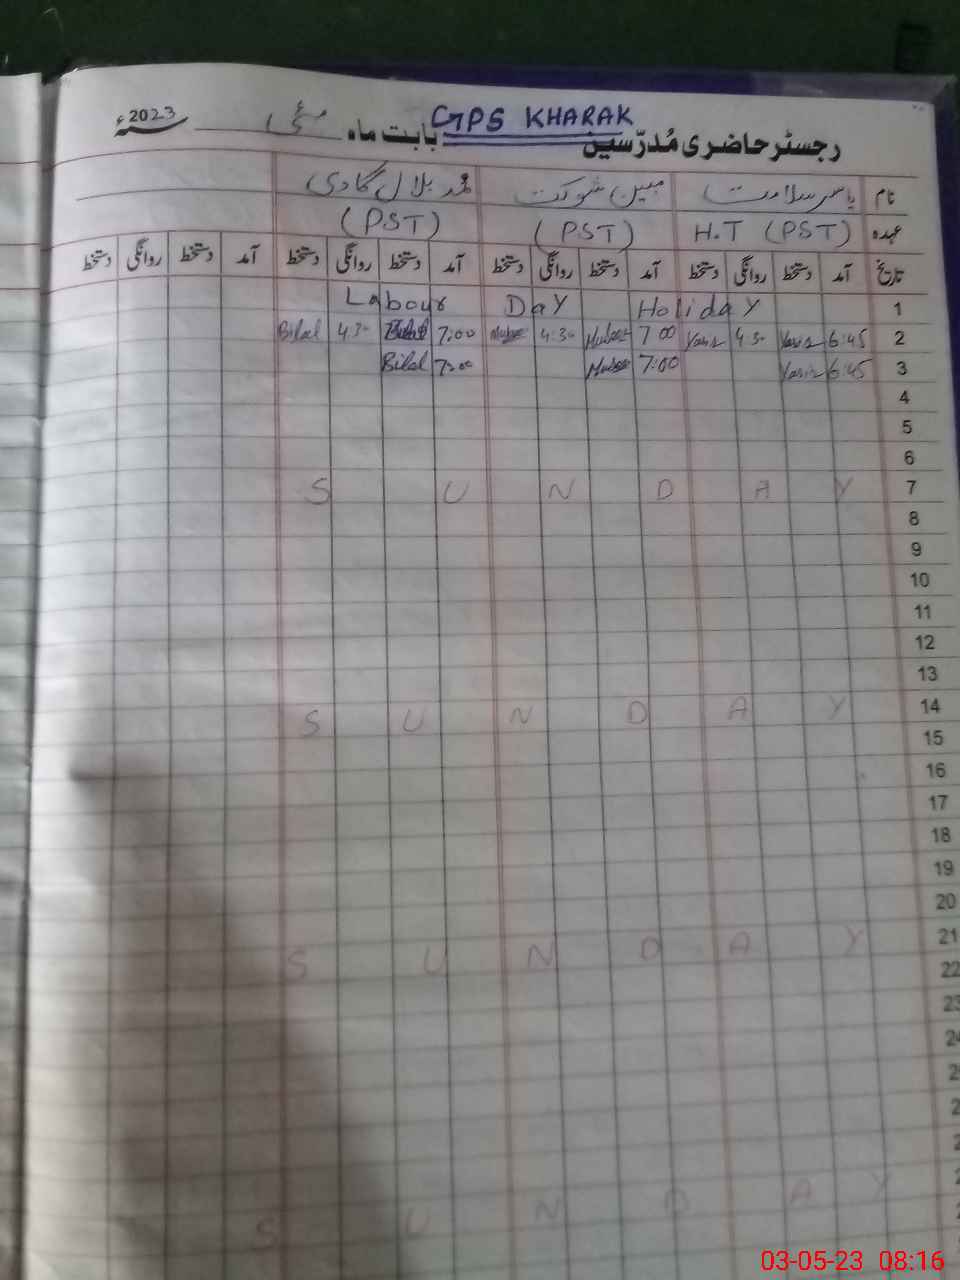 GPS KHARAK
رجسٹر حاضری مُدرّسین بابت ماہ مئی سنہ 2023ء
نام یاسر سلامت مبین شوکت محمد بلال گادی
عہدہ H.T (PST) (PST) (PST)
تاریخ آمد دستخط روانگی دستخط آمد دستخط روانگی دستخط آمد دستخط روانگی دستخط آمد دستخط روانگی دستخط
1 Labour Day Holiday
2 6:45 Yasir 4 3- Yasir 7 00 4:3- 7:00 Bilal 4 3- Bilal
3 6:45 Yasir 7:00 7:00 Bilal
4
5
6
7 SUNDAY
8
9
10
11
12
13
14 SUNDAY
15
16
17
18
19
20
21 SUNDAY
22
23
SUNDAY
03-05-23 08:16